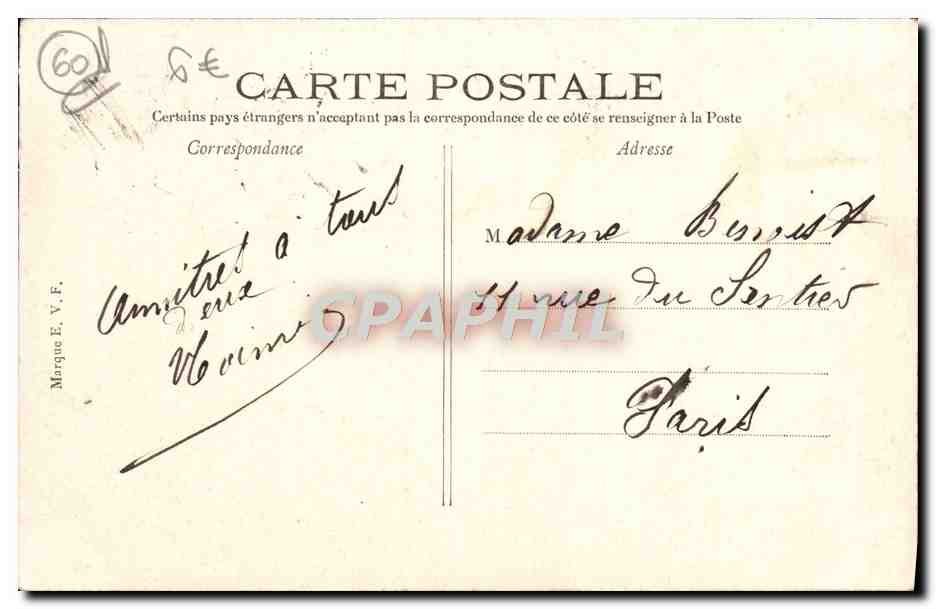 60
6€
CARTE POSTALE
Certains pays étrangers n'acceptant pas la correspondance de ce côté se renseigner à la Poste
Correspondance
Adresse
Amitiés à tous
deux
Madame Benoist
11 rue du Sentier
Paris
Marque E. V. F.
CPAPHIL